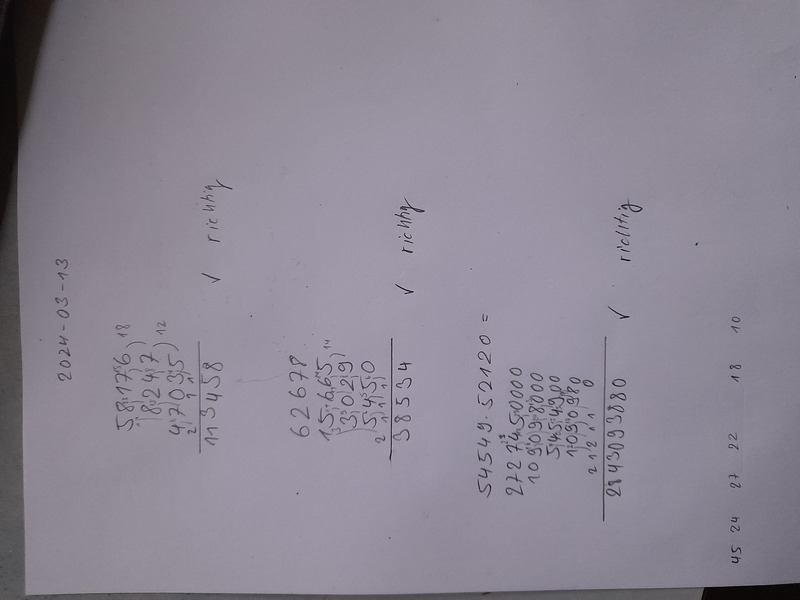 2024-03-13
58176
8247
47035
113458
✓ richtig
62678
15665
3029
5450
38534
✓ richtig
54549·52120=
2727450000
109098000
5454900
1090980
0
2843093880
✓ richtig
45 24 27 22 18 10